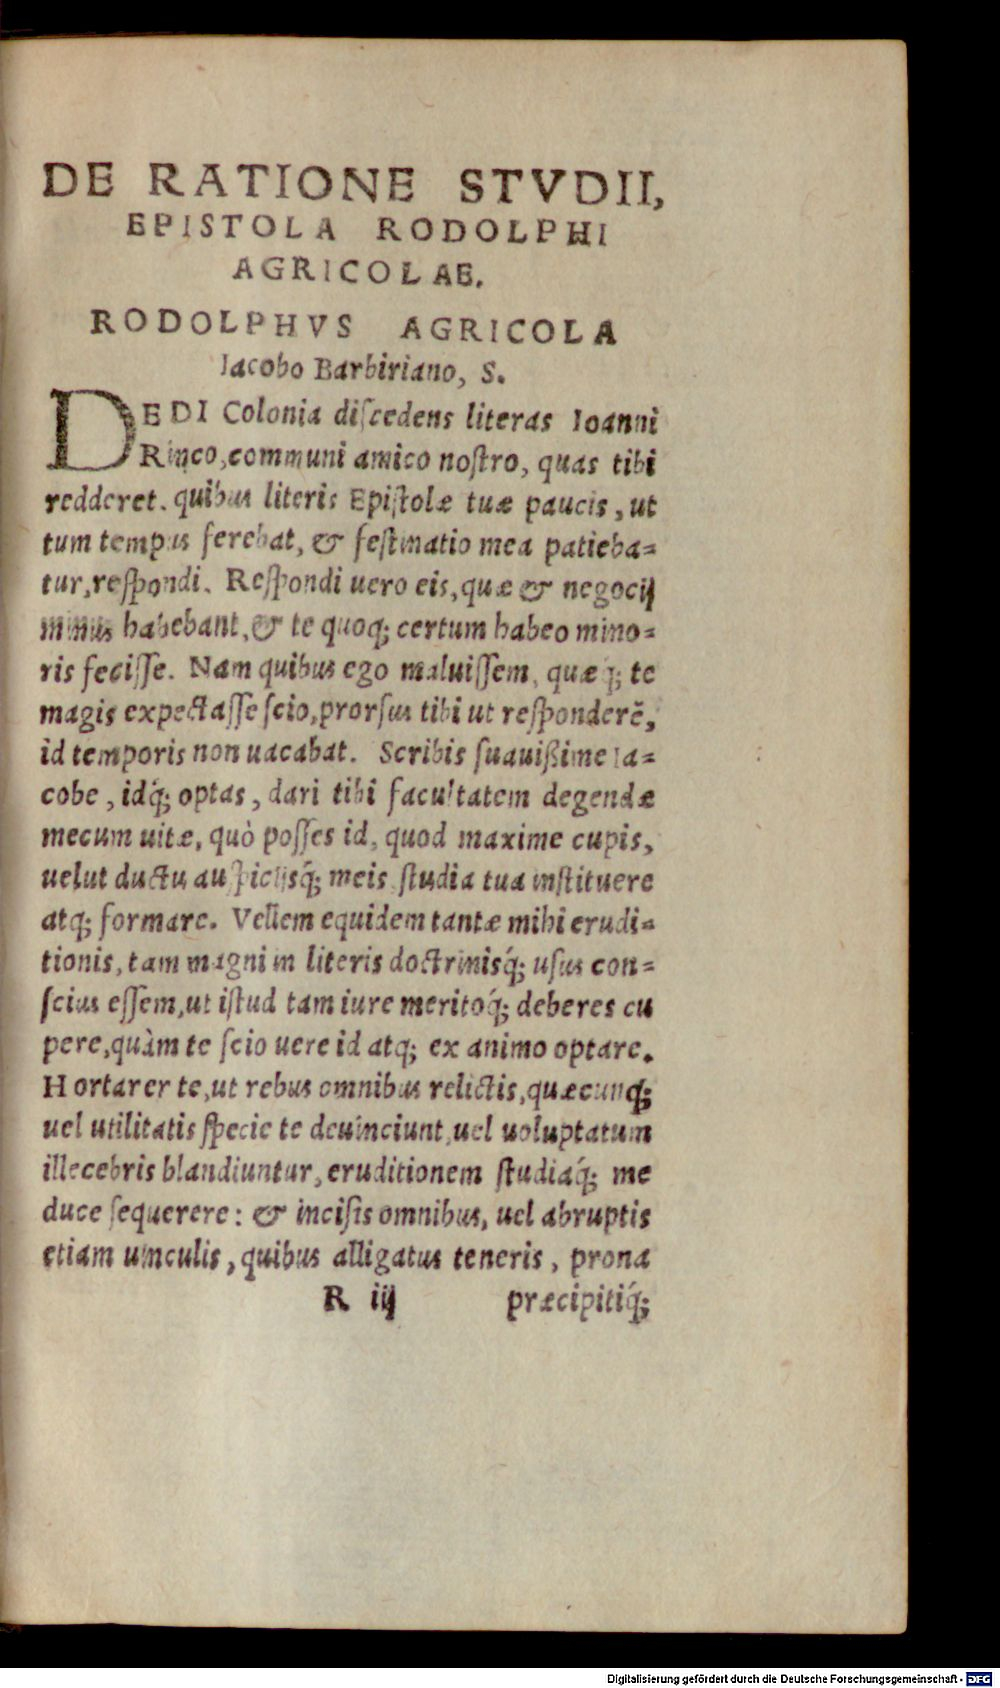 DE RATIONE STVDII,
EPISTOLA RODOLPHI
AGRICOLAE.
RODOLPHVS AGRICOLA
Iacobo Barbiriano, S.
DEDI Colonia diſcedens literas Ioanni
Rinco, communi amico noſtro, quas tibi
redderet. quibus literis Epiſtolæ tuæ paucis, ut
tum tempus ferebat, & feſtinatio mea patieba=
tur, reſpondi. Reſpondi uero eis, quæ & negocij
minus habebant, & te quoq; certum habeo mino=
ris feciſſe. Nam quibus ego maluiſſem, quæq́; te
magis expectaſſe ſcio, prorſus tibi ut reſponderē,
id temporis non uacabat. Scribis ſuauißime Ia=
cobe, idq́; optas, dari tibi facultatem degendæ
mecum uitæ, quò poſſes id, quod maxime cupis,
uelut ductu auſpicijsq́; meis ſtudia tua inſtituere
atq; formare. Vellem equidem tantæ mihi erudi=
tionis, tam magni in literis doctrinisq́; uſus con=
ſcius eſſem, ut iſtud tam iure meritoq́; deberes cu
pere, quàm te ſcio uere id atq; ex animo optare.
Hortarer te, ut rebus omnibus relictis, quæcunq́;
uel utilitatis ſpecie te deuinciunt, uel uoluptatum
illecebris blandiuntur, eruditionem ſtudiaq́; me
duce ſequerere: & inciſis omnibus, uel abruptis
etiam uinculis, quibus alligatus teneris, prona
R iij præcipitiq́;
Digitalisierung gefördert durch die Deutsche Forschungsgemeinschaft - DFG